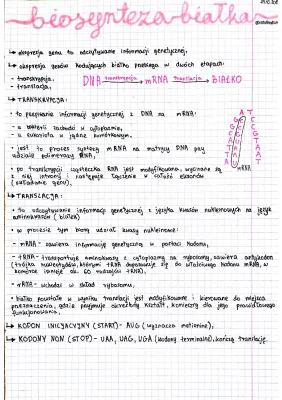 biosynteza białka
↳ ekspresja genu to odczytywanie informacji genetycznej.
↳ ekspresja genów kodujących białka przebiega w dwóch etapach:
- transkrypcja,
- translacja,
DNA transkrypcja → mRNA translacja → BIAŁKO
↳ TRANSKRYPCJA:
• to przepisanie informacji genetycznej z DNA na mRNA:
- u bakterii zachodzi w cytoplazmie,
- u eukariota w jądrze komórkowym.
• jest to proces syntezy mRNA na matrycy DNA przy
udziale polimerazy RNA,
• po transkrypcji cząsteczka RNA jest modyfikowana, wycinane są
z niej introny i następuje łączenie w całość eksonów
(składanie genu).
mRNA
↳ TRANSLACJA:
• to odczytywanie informacji genetycznej z języka kwasów nukleinowych na język
aminokwasów (białek)
• w procesie tym biorą udział kwasy nukleinowe:
- mRNA - zawiera informację genetyczną w postaci kodonu,
- tRNA - transportuje aminokwasy z cytoplazmy na rybosomy, zawiera antykodon
(trójka nukleotydów, którymi tRNA dopasowuje się do właściwego kodonu mRNA, w
komórce istnieje ok. 60 rodzajów tRNA),
- rRNA - wchodzi w skład rybosomu,
• białko powstałe w wyniku translacji jest modyfikowane i kierowane do miejsca
przeznaczenia, gdzie przyjmuje określony kształt, konieczny dla jego prawidłowego
funkcjonowania,
↳ KODON INICJACYJNY (START) - AUG (wyznacza metioninę),
↳ KODONY NON (STOP) - UAA, UAG, UGA (kodony terminalne), kończą translację.